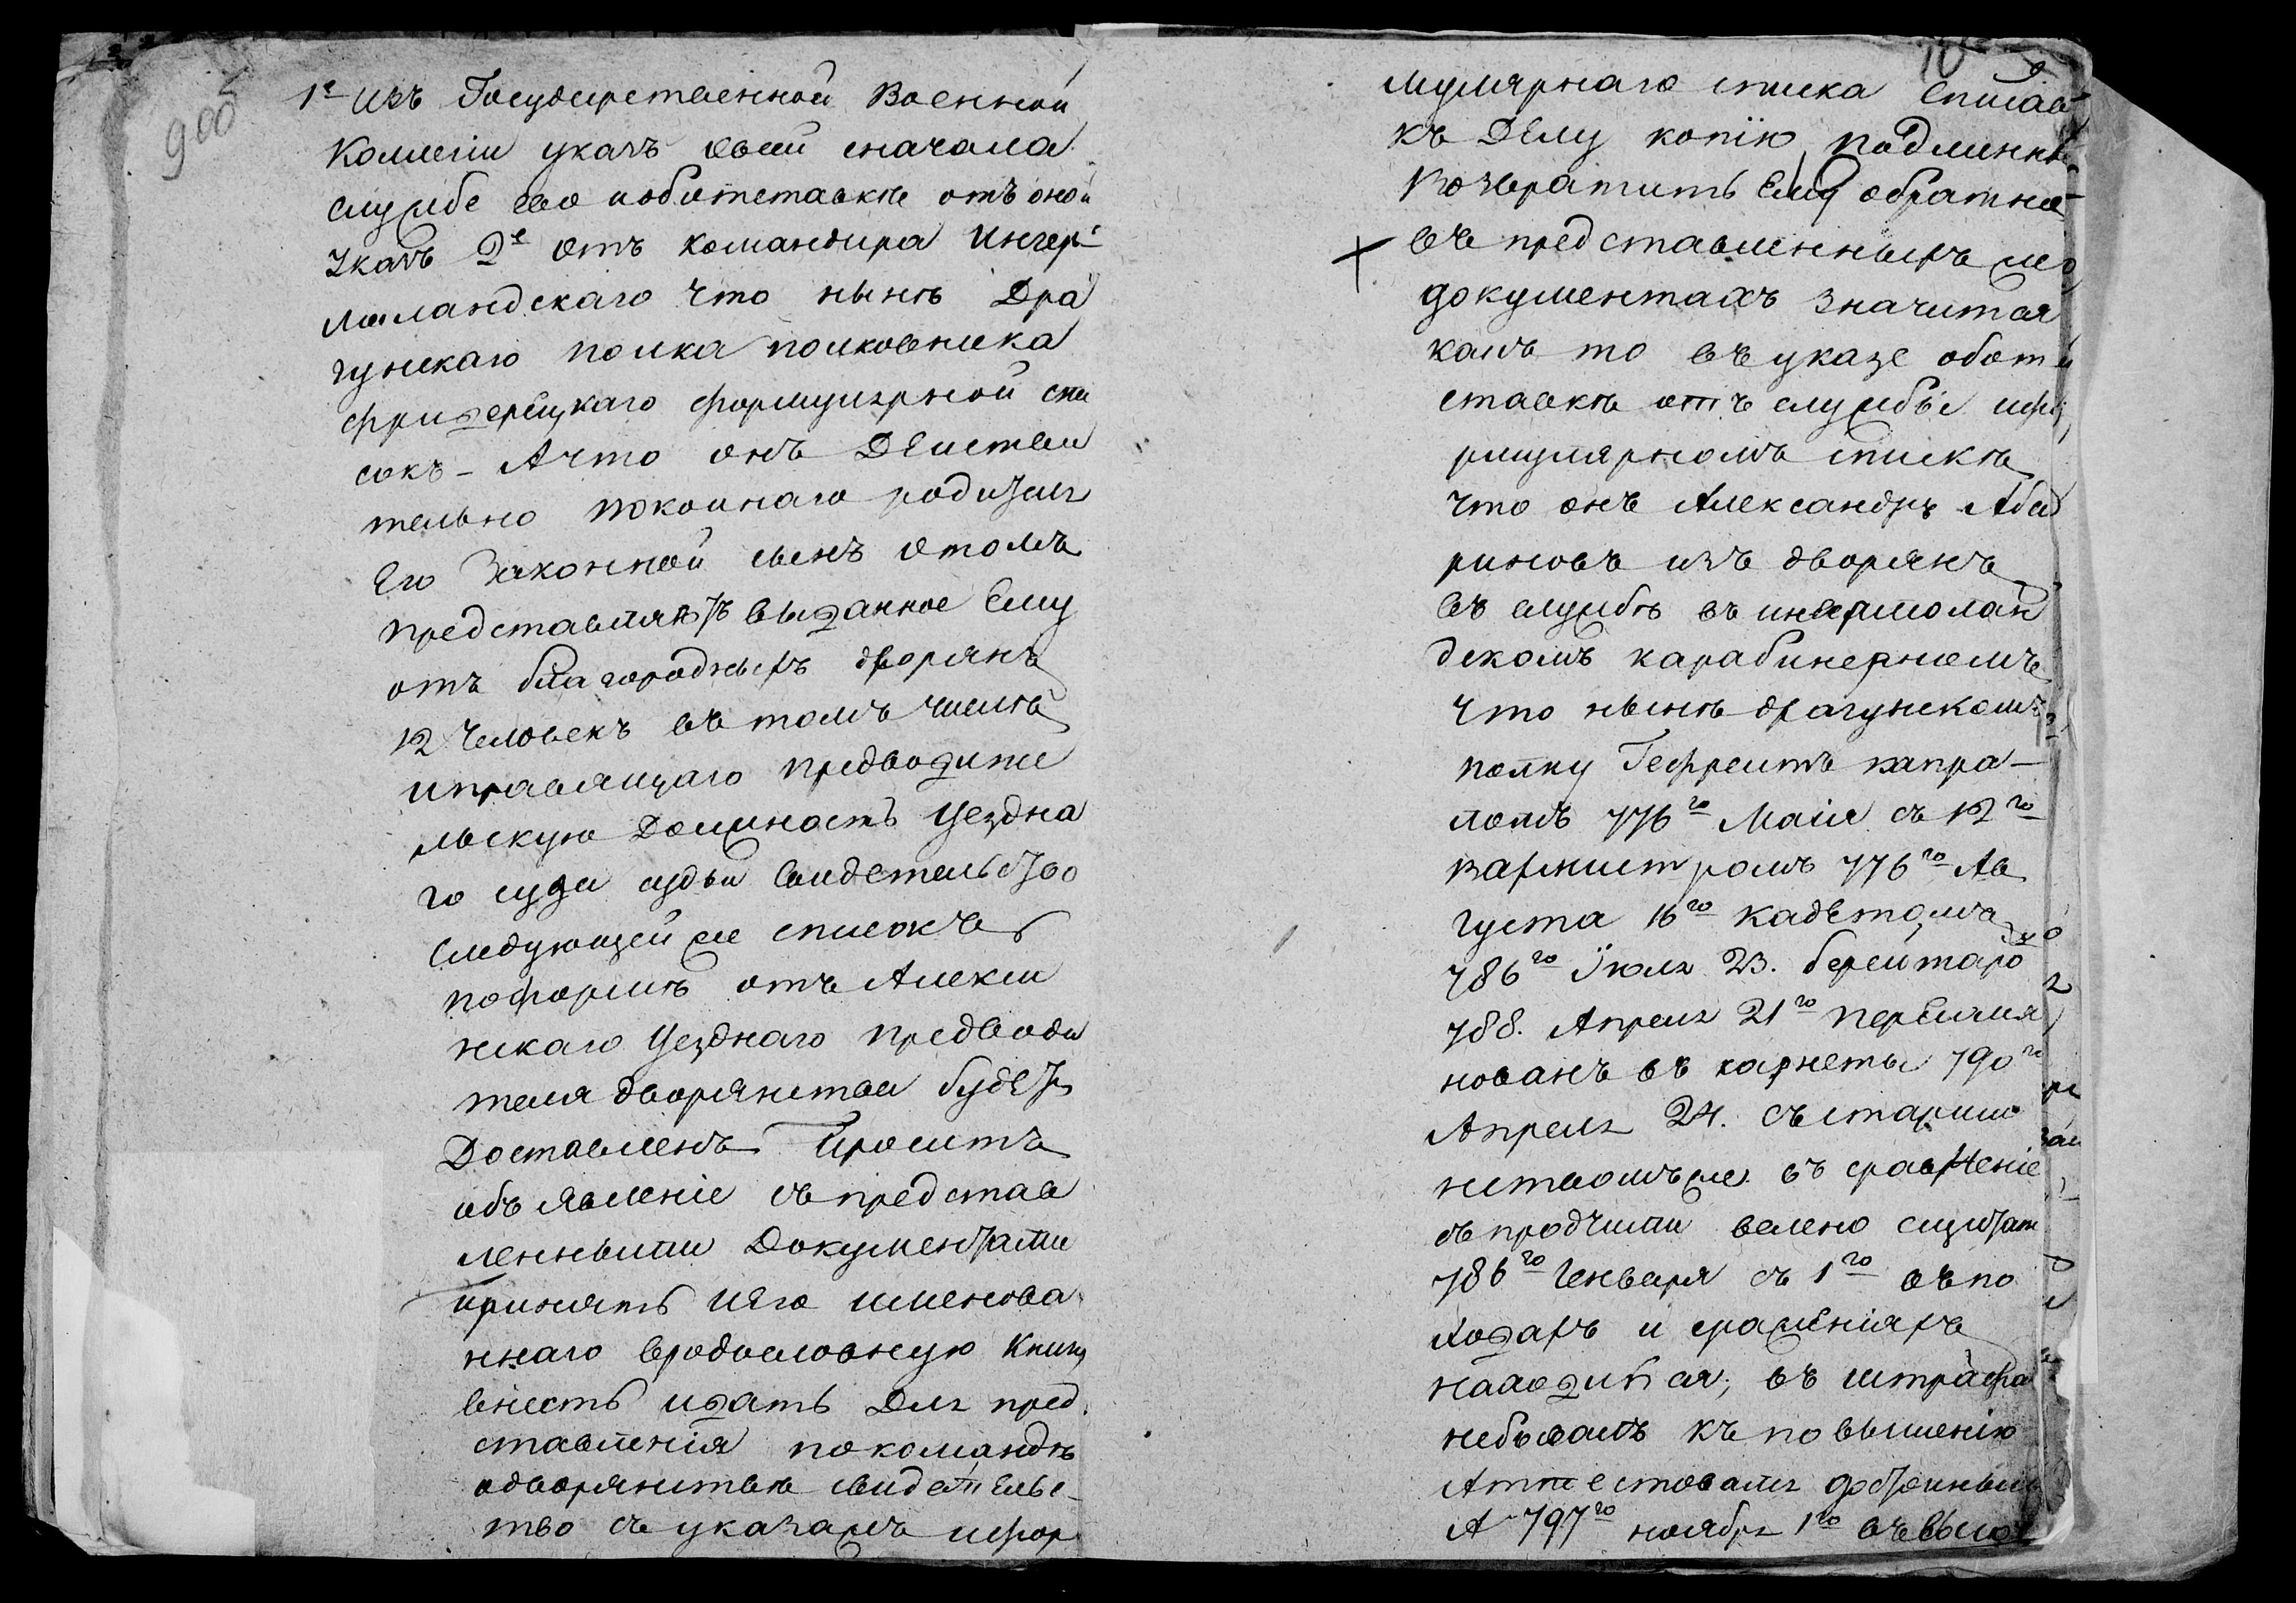 900
1е Изъ Государственной Военной
Коллегии указъ овсей сначала
службе ево иоботставке отъ оной
Указъ 2е отъ командира Ингер-
маландскаго что нынѣ Дра
гунскаго полка полковника
формулярной спи
сокъ - Ачто онъ Действи
тельно покойнаго родителя
Его Законной сынъ отомъ
представляетъ выданное Ему
отъ благородныхъ дворянъ
12 человекъ въ томъ числѣ
иправящаго предводите
льскую Должность уездна
го суда судьи свидетельство
Следующей же списокъ
поформѣ отъ Алекси
нскаго уезднаго предводи
теля дворянства будетъ
Доставленъ Проситъ
объявленіе съ представ
ленными Документами
принять иего именова
ннаго вродословную книгу
внесть идать Для пред
ставленія покомандѣ
одворянствѣ свидетельс-
тво съ указамъ ифор
мулярнаго списка списав
къ Делу копію подлинные
возвратить Ему обратно
въ представленныхъ же
документахъ значится
какъ то въ указе обот
ставкѣ отъ службы ифо
рмулярномъ спискѣ
что онъ Александръ Аба
риновъ изъ дворянъ
въ службѣ въ ингермолан
дскомъ карабинерномъ
что нынѣ драгунскомъ
полку Гефреитъ капра-
ломъ 776го Маія съ 12го
вахмистромъ 776го Ав
густа 16го кадетомъ
786го Июля 23. берейтаро
788. Апреля 21го переиме
нованъ въ карнеты 790го
Апреля 24. съ старши
нствомъ же въ сравненіе
съ протчими велено считать
786го Генваря съ 1го въ по
ходахъ и сраженіяхъ
находился, въ штрафа
небывалъ къ повышенію
Аттестовался достойнымъ
А 797го ноября 1го въ высо